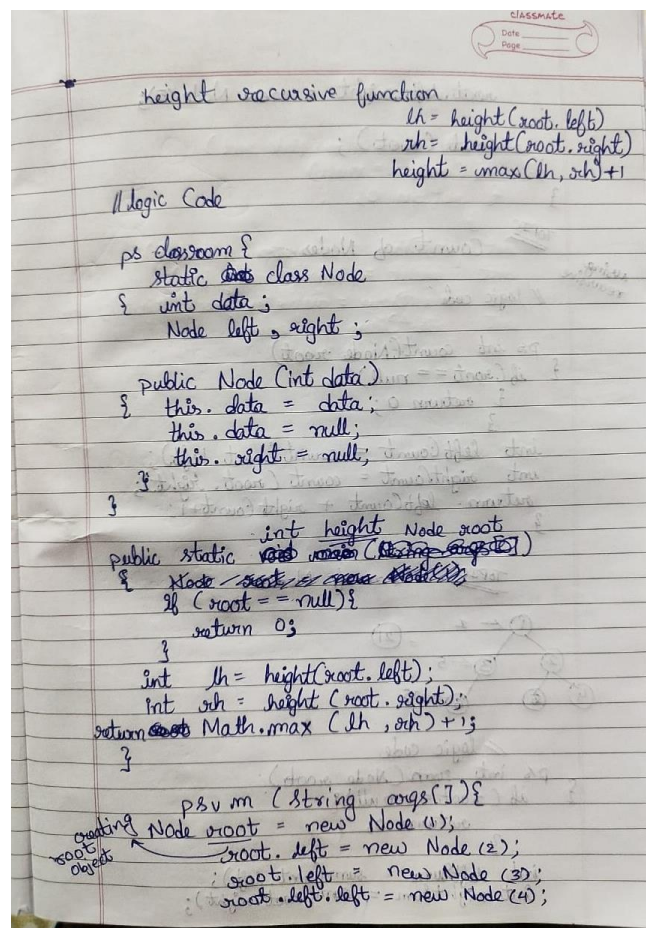 classmate
Date
Page
height recursive function
lh = height(root.left)
rh = height(root.right)
height = max(lh, rh)+1
// logic Code
ps classroom {
static class Node
{ int data ;
Node left , right ;
public Node (int data)
{ this. data = data;
this. data = null;
this. right = null;
}
}
int height Node root
public static void main (String args[])
{
If (root == null){
return 0;
}
int lh = height(root.left);
int rh = height (root.right);
return Math.max (lh , rh) + 1;
}
psvm (String args[]){
creating root object
Node root = new Node (1);
root. left = new Node (2);
root. left = new Node (3);
root .left.left = new Node (4);